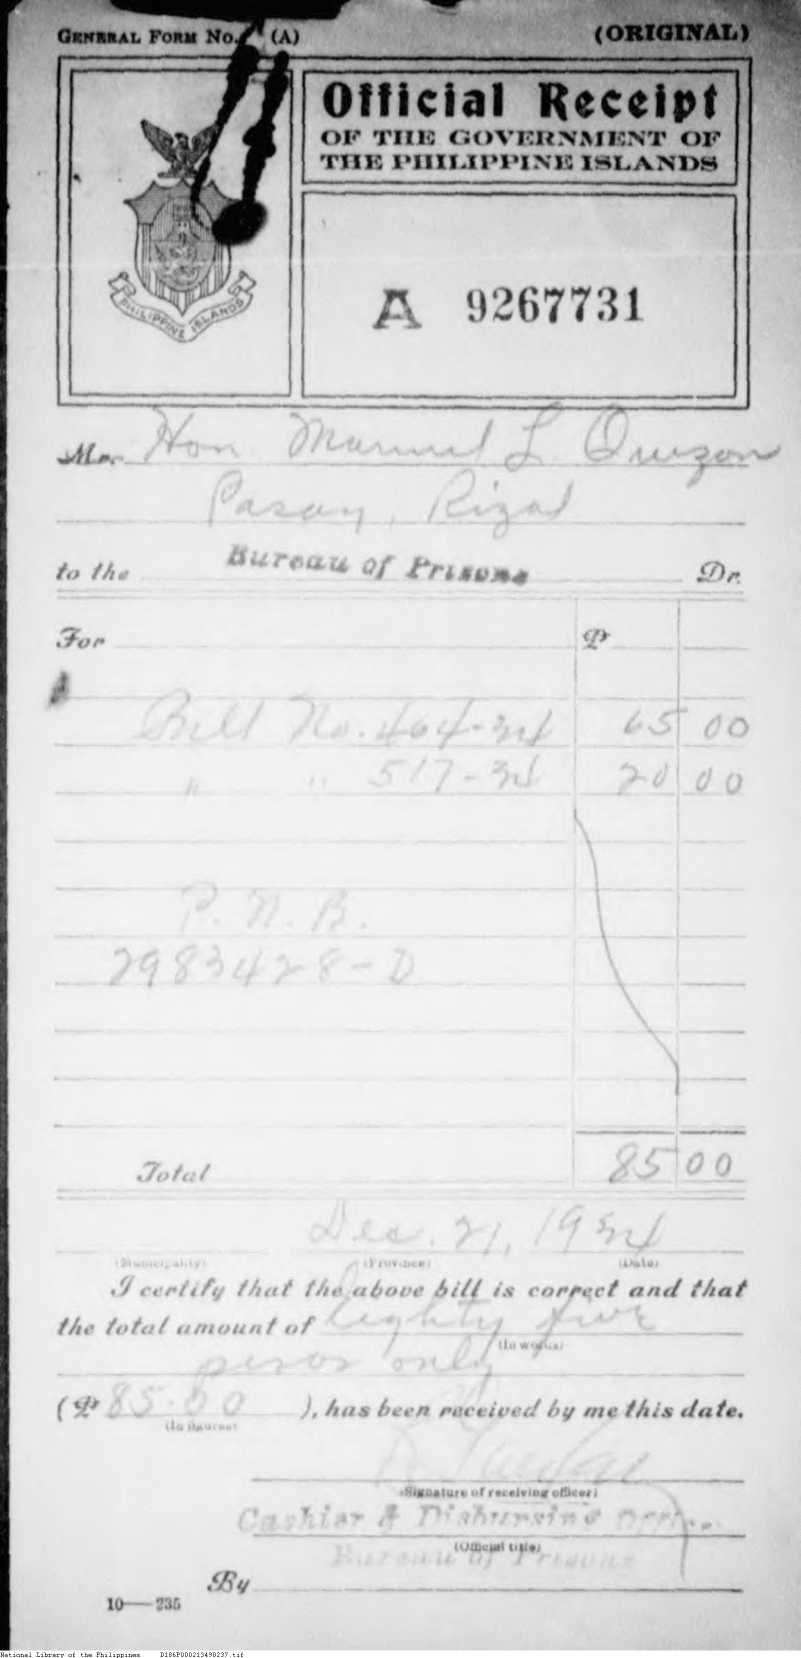 GENERAL FORM No. (A)
(ORIGINAL)
Official Receipt
OF THE GOVERNMENT OF
THE PHILIPPINE ISLANDS
PHILIPPINE ISLANDS
A 9267731
Mr. Hon. Manuel L. Quezon
Pasay, Rizal
to the Bureau of Prisons Dr.
For ₱
Bill No. 464-34 65 00
" " 517-34 20 00
P. N. B.
2983428-D
Total 85 00
Dec. 21, 1934
(Municipality) (Province) (Date)
I certify that the above bill is correct and that
the total amount of Eighty five
(In words)
pesos only
(₱ 85.00 ), has been received by me this date.
(In figures)
(Signature of receiving officer)
Cashier & Disbursing Officer
(Official title)
Bureau of Prisons
By
10—235
National Library of the Philippines D186P000213498237.tif